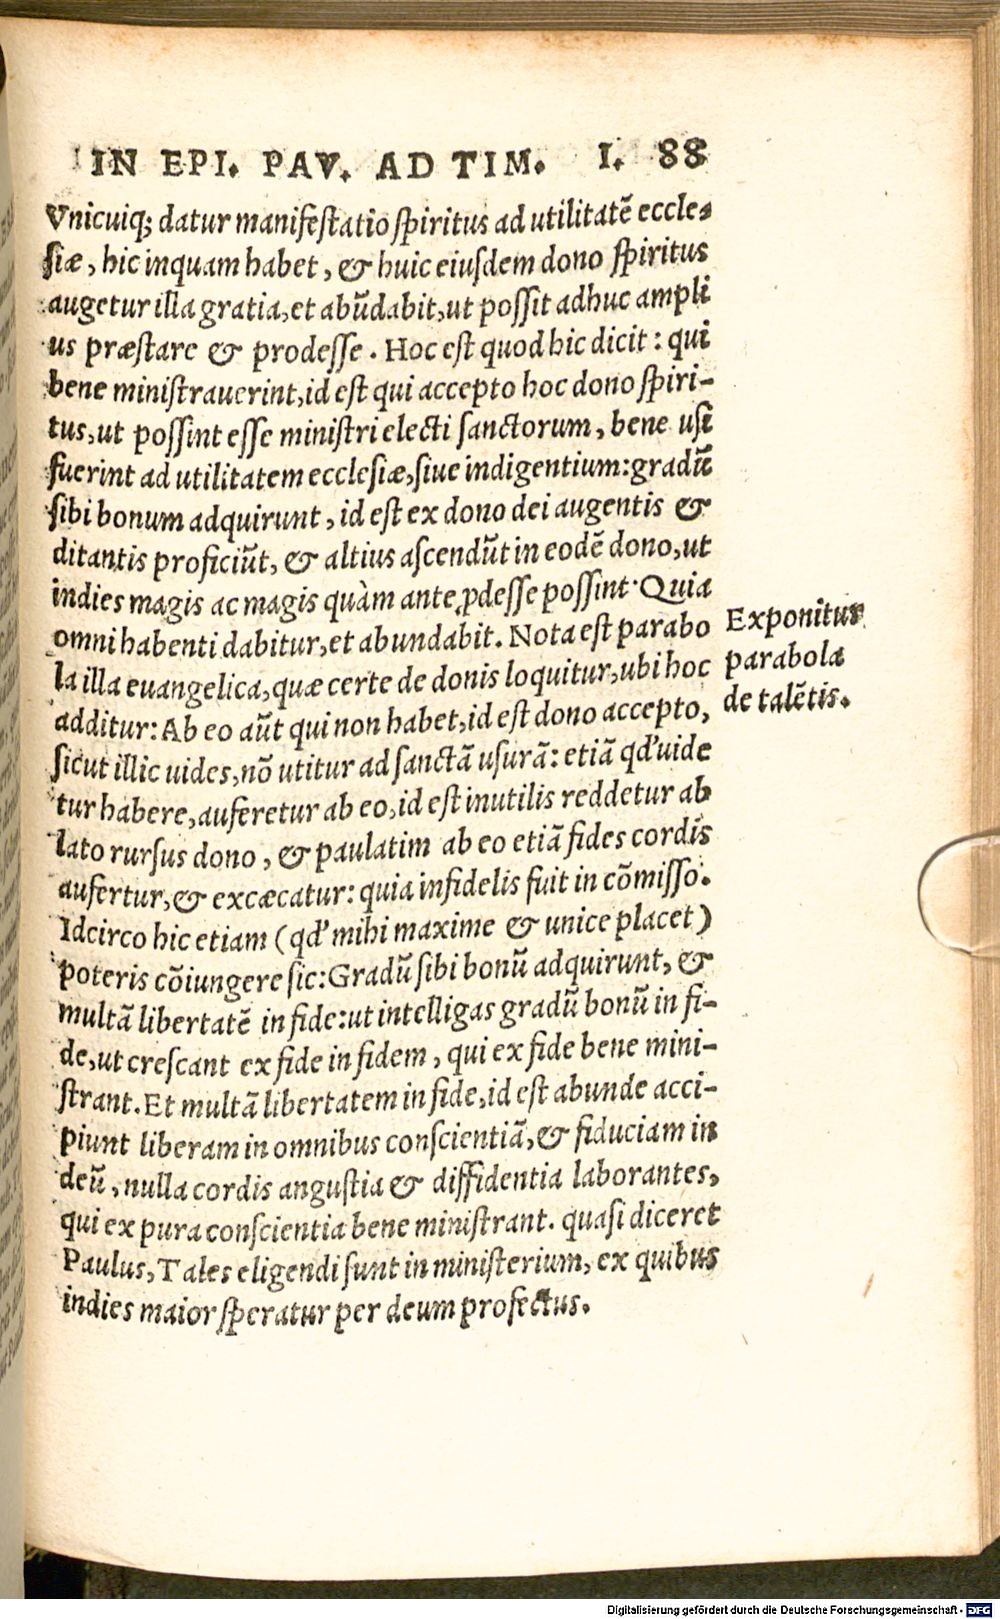 IN EPI. PAV. AD TIM. I. 88
Vnicuiq; datur manifeſtatio ſpiritus ad utilitatē eccle-
ſiæ, hic inquam habet, & huic eiuſdem dono ſpiritus
augetur illa gratia, et abūdabit, ut poſſit adhuc ampli
us præſtare & prodeſſe. Hoc eſt quod hic dicit: qui
bene miniſtrauerint, id eſt qui accepto hoc dono ſpiri-
tus, ut poſſint eſſe miniſtri electi ſanctorum, bene uſi
fuerint ad utilitatem eccleſiæ, ſiue indigentium: gradū
ſibi bonum adquirunt, id eſt ex dono dei augentis &
ditantis proficiūt, & altius aſcendūt in eodē dono, ut
indies magis ac magis quàm ante ꝓdeſſe poſſint. Quia
omni habenti dabitur, et abundabit. Nota eſt parabo
la illa euangelica, quæ certe de donis loquitur, ubi hoc
additur: Ab eo aūt qui non habet, id eſt dono accepto,
ſicut illic uides, nō utitur ad ſanctā uſurā: etiā qd' uide
tur habere, auferetur ab eo, id eſt inutilis reddetur ab
lato rurſus dono, & paulatim ab eo etiā fides cordis
aufertur, & excæcatur: quia infidelis fuit in cōmiſſo.
Idcirco hic etiam (qd' mihi maxime & unice placet)
poteris cōiungere ſic: Gradū ſibi bonū adquirunt, &
multā libertatē in fide: ut intelligas gradū bonū in fi-
de, ut creſcant ex fide in fidem, qui ex fide bene mini-
ſtrant. Et multā libertatem in fide, id eſt abunde acci-
piunt liberam in omnibus conſcientiā, & fiduciam in
deū, nulla cordis anguſtia & diffidentia laborantes,
qui ex pura conſcientia bene miniſtrant. quaſi diceret
Paulus, Tales eligendi ſunt in miniſterium, ex quibus
indies maior ſperatur per deum profectus.
Exponitur
parabola
de talētis.
Digitalisierung gefördert durch die Deutsche Forschungsgemeinschaft - DFG